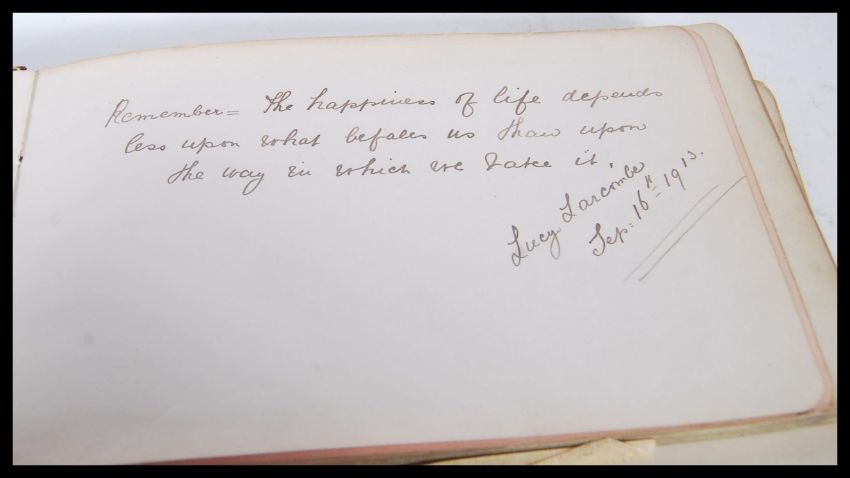 Remember = The happiness of life depends
less upon what befalls us than upon
the way in which we take it.
Lucy Larcombe
Sep: 16th 1913.